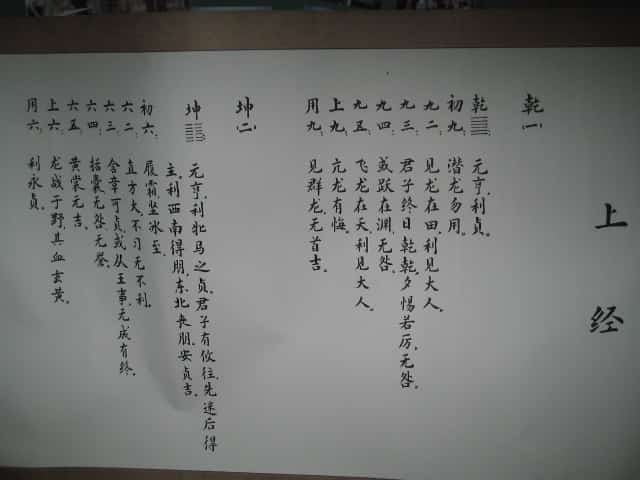 上经
乾(一)
乾䷀ 元亨,利贞。
初九: 潜龙勿用。
九二: 见龙在田,利见大人。
九三: 君子终日乾乾,夕惕若厉,无咎。
九四: 或跃在渊,无咎。
九五: 飞龙在天,利见大人。
上九: 亢龙有悔。
用九: 见群龙无首,吉。
坤(二)
坤䷁ 元亨,利牝马之贞。君子有攸往,先迷后得
主,利西南得朋,东北丧朋,安贞吉。
初六: 履霜,坚冰至。
六二: 直方大,不习无不利。
六三: 含章可贞,或从王事,无成有终。
六四: 括囊,无咎无誉。
六五: 黄裳元吉。
上六: 龙战于野,其血玄黄。
用六: 利永贞。